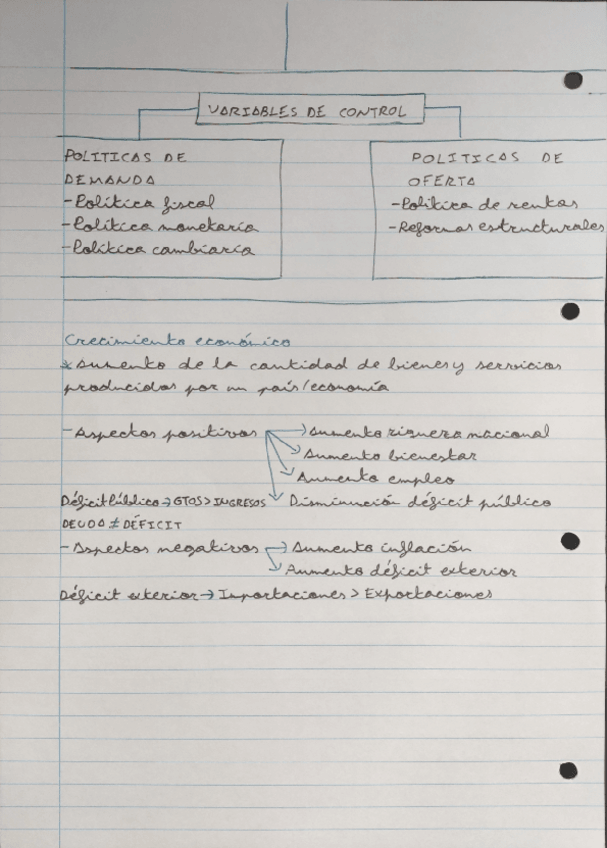 VARIABLES DE CONTROL
POLITICAS DE
DEMANDA
-Política fiscal
-Política monetaria
-Política cambiaria
POLITICAS DE
OFERTA
-Política de rentas
-Reformas estructurales
Crecimiento económico
*Aumento de la cantidad de bienes y servicios
producidos por un país/economía
-Aspectos positivos → Aumento riqueza nacional
Aumento bienestar
Aumento empleo
Déficit Público → GTOS > INGRESOS Disminución déficit público
DEUDA ≠ DÉFICIT
-Aspectos negativos → Aumento inflación
Aumento déficit exterior
Déficit exterior → Importaciones > Exportaciones